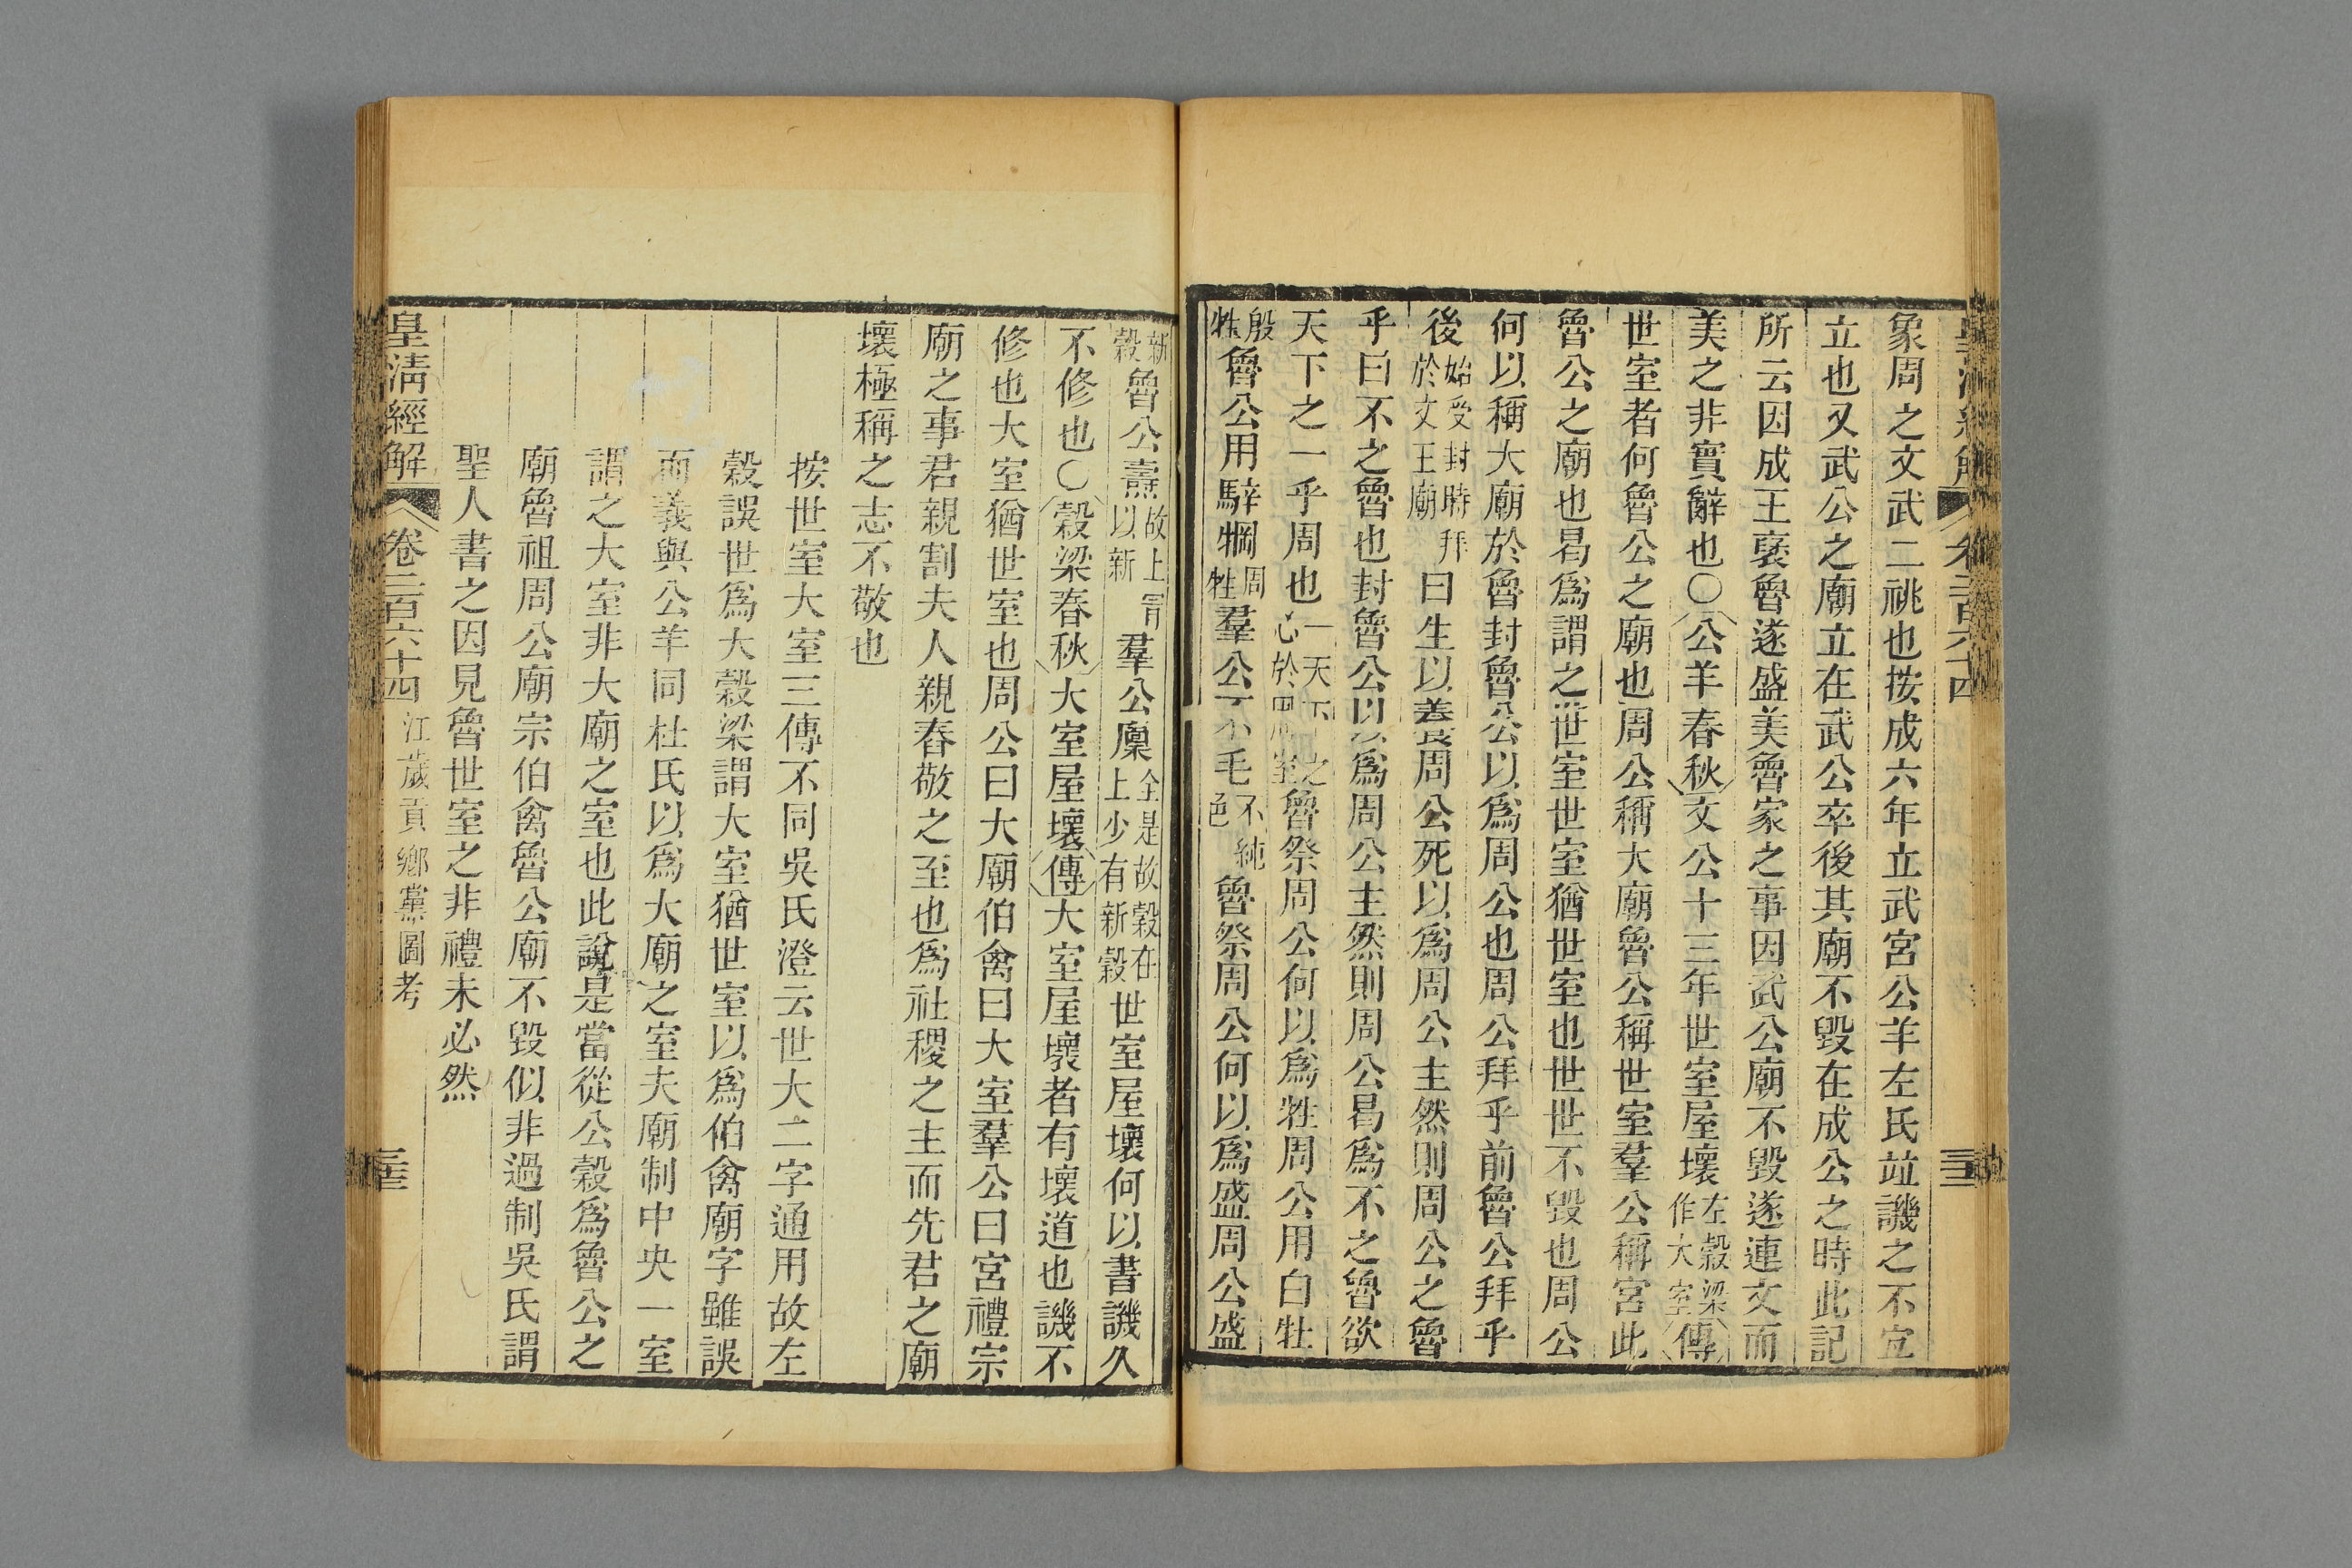 象周之文武二祧也按成六年立武宮公羊左氏竝譏之不宜
立也又武公之廟立在武公卒後其廟不毀在成公之時此記
所云因成王襃魯遂盛美魯家之事因武公廟不毀遂連文而
美之非實辭也〇公羊春秋文公十三年世室屋壞左穀梁作大室傳
世室者何魯公之廟也周公稱大廟魯公稱世室羣公稱宮此
魯公之廟也曷爲謂之世室世室猶世室也世世不毀也周公
何以稱大廟於魯封魯公以爲周公也周公拜乎前魯公拜乎
後始受封時拜於文王廟曰生以養周公死以爲周公主然則周公之魯
乎曰不之魯也封魯公以爲周公主然則周公曷爲不之魯欲
天下之一乎周也一天下之心於周室魯祭周公何以爲牲周公用白牡
殷牲魯公用騂犅周牲羣公不毛不純色魯祭周公何以爲盛周公盛
新穀魯公燾故上冒以新羣公廩全是故穀在上少有新穀世室屋壞何以書譏久
不修也〇穀梁春秋大室屋壞傳大室屋壞者有壞道也譏不
修也大室猶世室也周公曰大廟伯禽曰大室羣公曰宮禮宗
廟之事君親割夫人親舂敬之至也爲社稷之主而先君之廟
壞極稱之志不敬也
按世室大室三傳不同吳氏澄云世大二字通用故左
穀誤世爲大穀梁謂大室猶世室以爲伯禽廟字雖誤
而義與公羊同杜氏以爲大廟之室夫廟制中央一室
謂之大室非大廟之室也此說是當從公穀爲魯公之
廟魯祖周公廟宗伯禽魯公廟不毀似非過制吳氏謂
聖人書之因見魯世室之非禮未必然
皇清經解 卷二百六十四 江歲貢鄉黨圖考